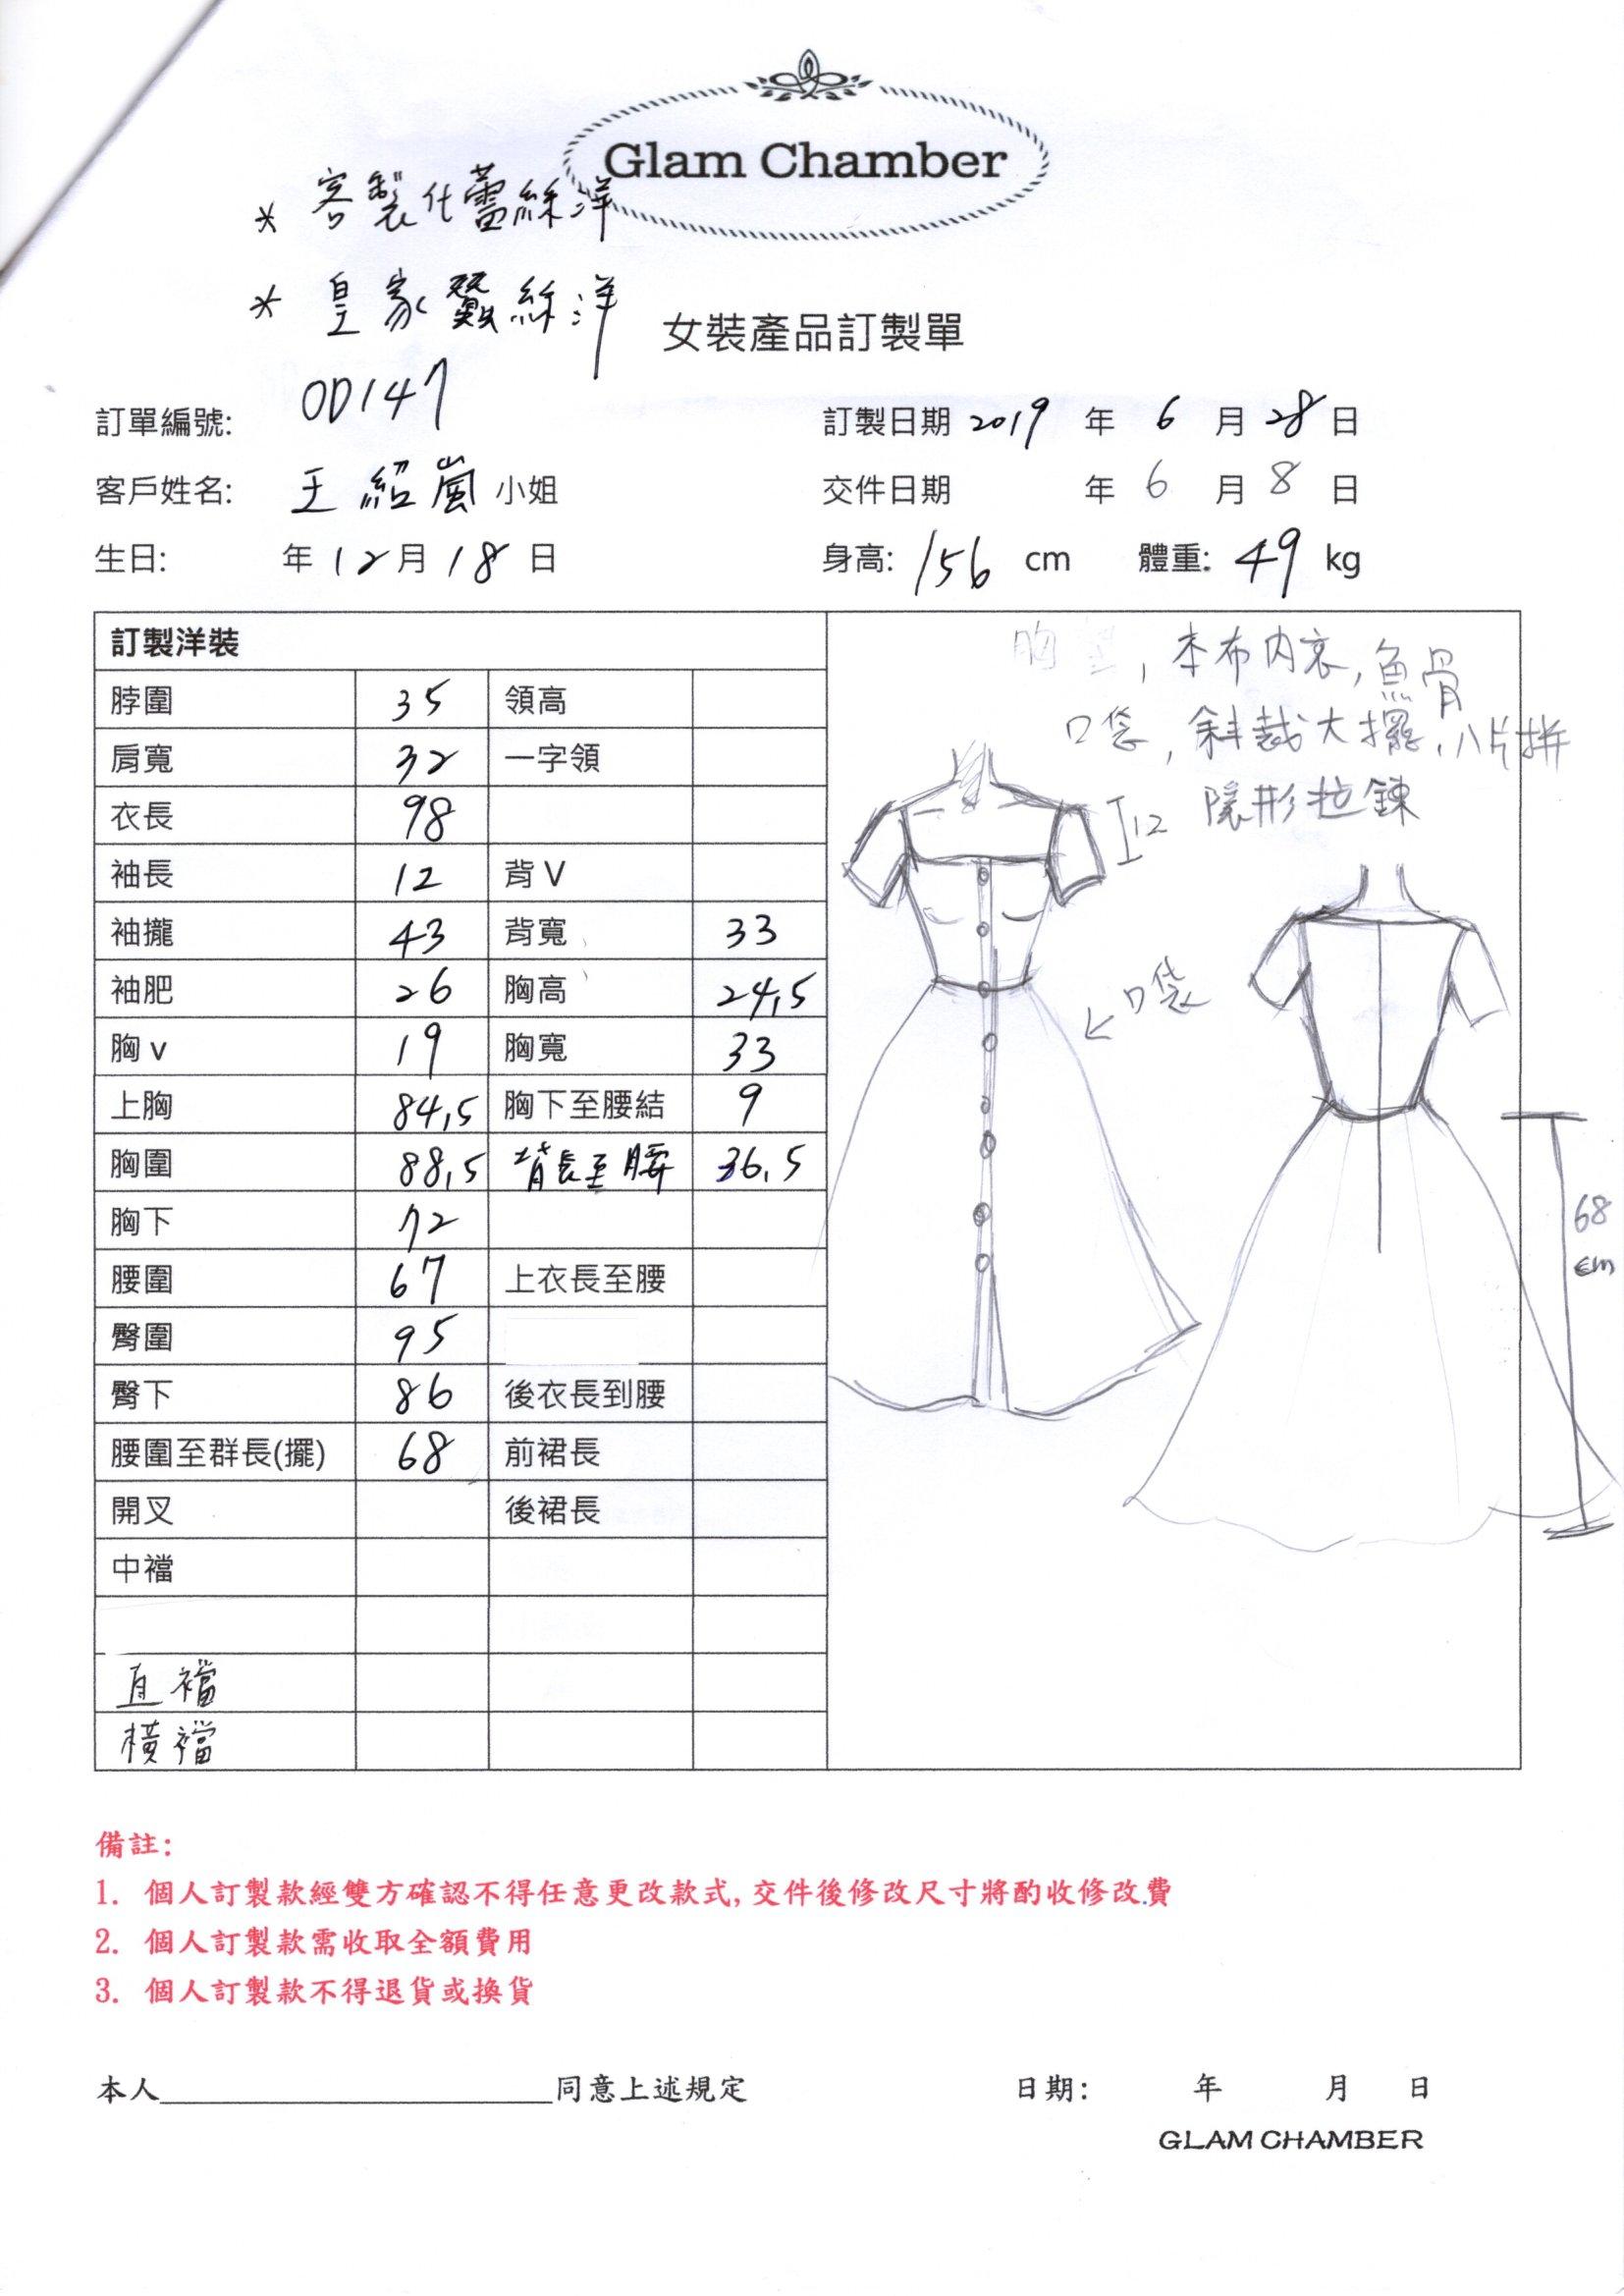 Glam Chamber
* 客製化蕾絲洋
* 皇家蠶絲洋
女裝產品訂製單
訂單編號: OD147
訂製日期 2019 年 6 月 28 日
客戶姓名: 王紹嵐 小姐
交件日期 年 6 月 8 日
生日: 年 12 月 18 日
身高: 156 cm 體重: 49 kg
訂製洋裝
脖圍 35 領高
肩寬 32 一字領
衣長 98
袖長 12 背 V
袖攏 43 背寬 33
袖肥 26 胸高 24,5
胸 v 19 胸寬 33
上胸 84,5 胸下至腰結 9
胸圍 88,5 背長至腰 36,5
胸下 72
腰圍 67 上衣長至腰
臀圍 95
臀下 86 後衣長到腰
腰圍至群長(擺) 68 前裙長
開叉 後裙長
中襠
直襠
橫襠
胸, 本布内裏, 魚骨
口袋, 斜裁大擺, 八片拼
隱形拉鍊
12
口袋
68
cm
備註:
1. 個人訂製款經雙方確認不得任意更改款式, 交件後修改尺寸將酌收修改.費
2. 個人訂製款需收取全額費用
3. 個人訂製款不得退貨或換貨
本人________________同意上述規定
日期: 年 月 日
GLAM CHAMBER